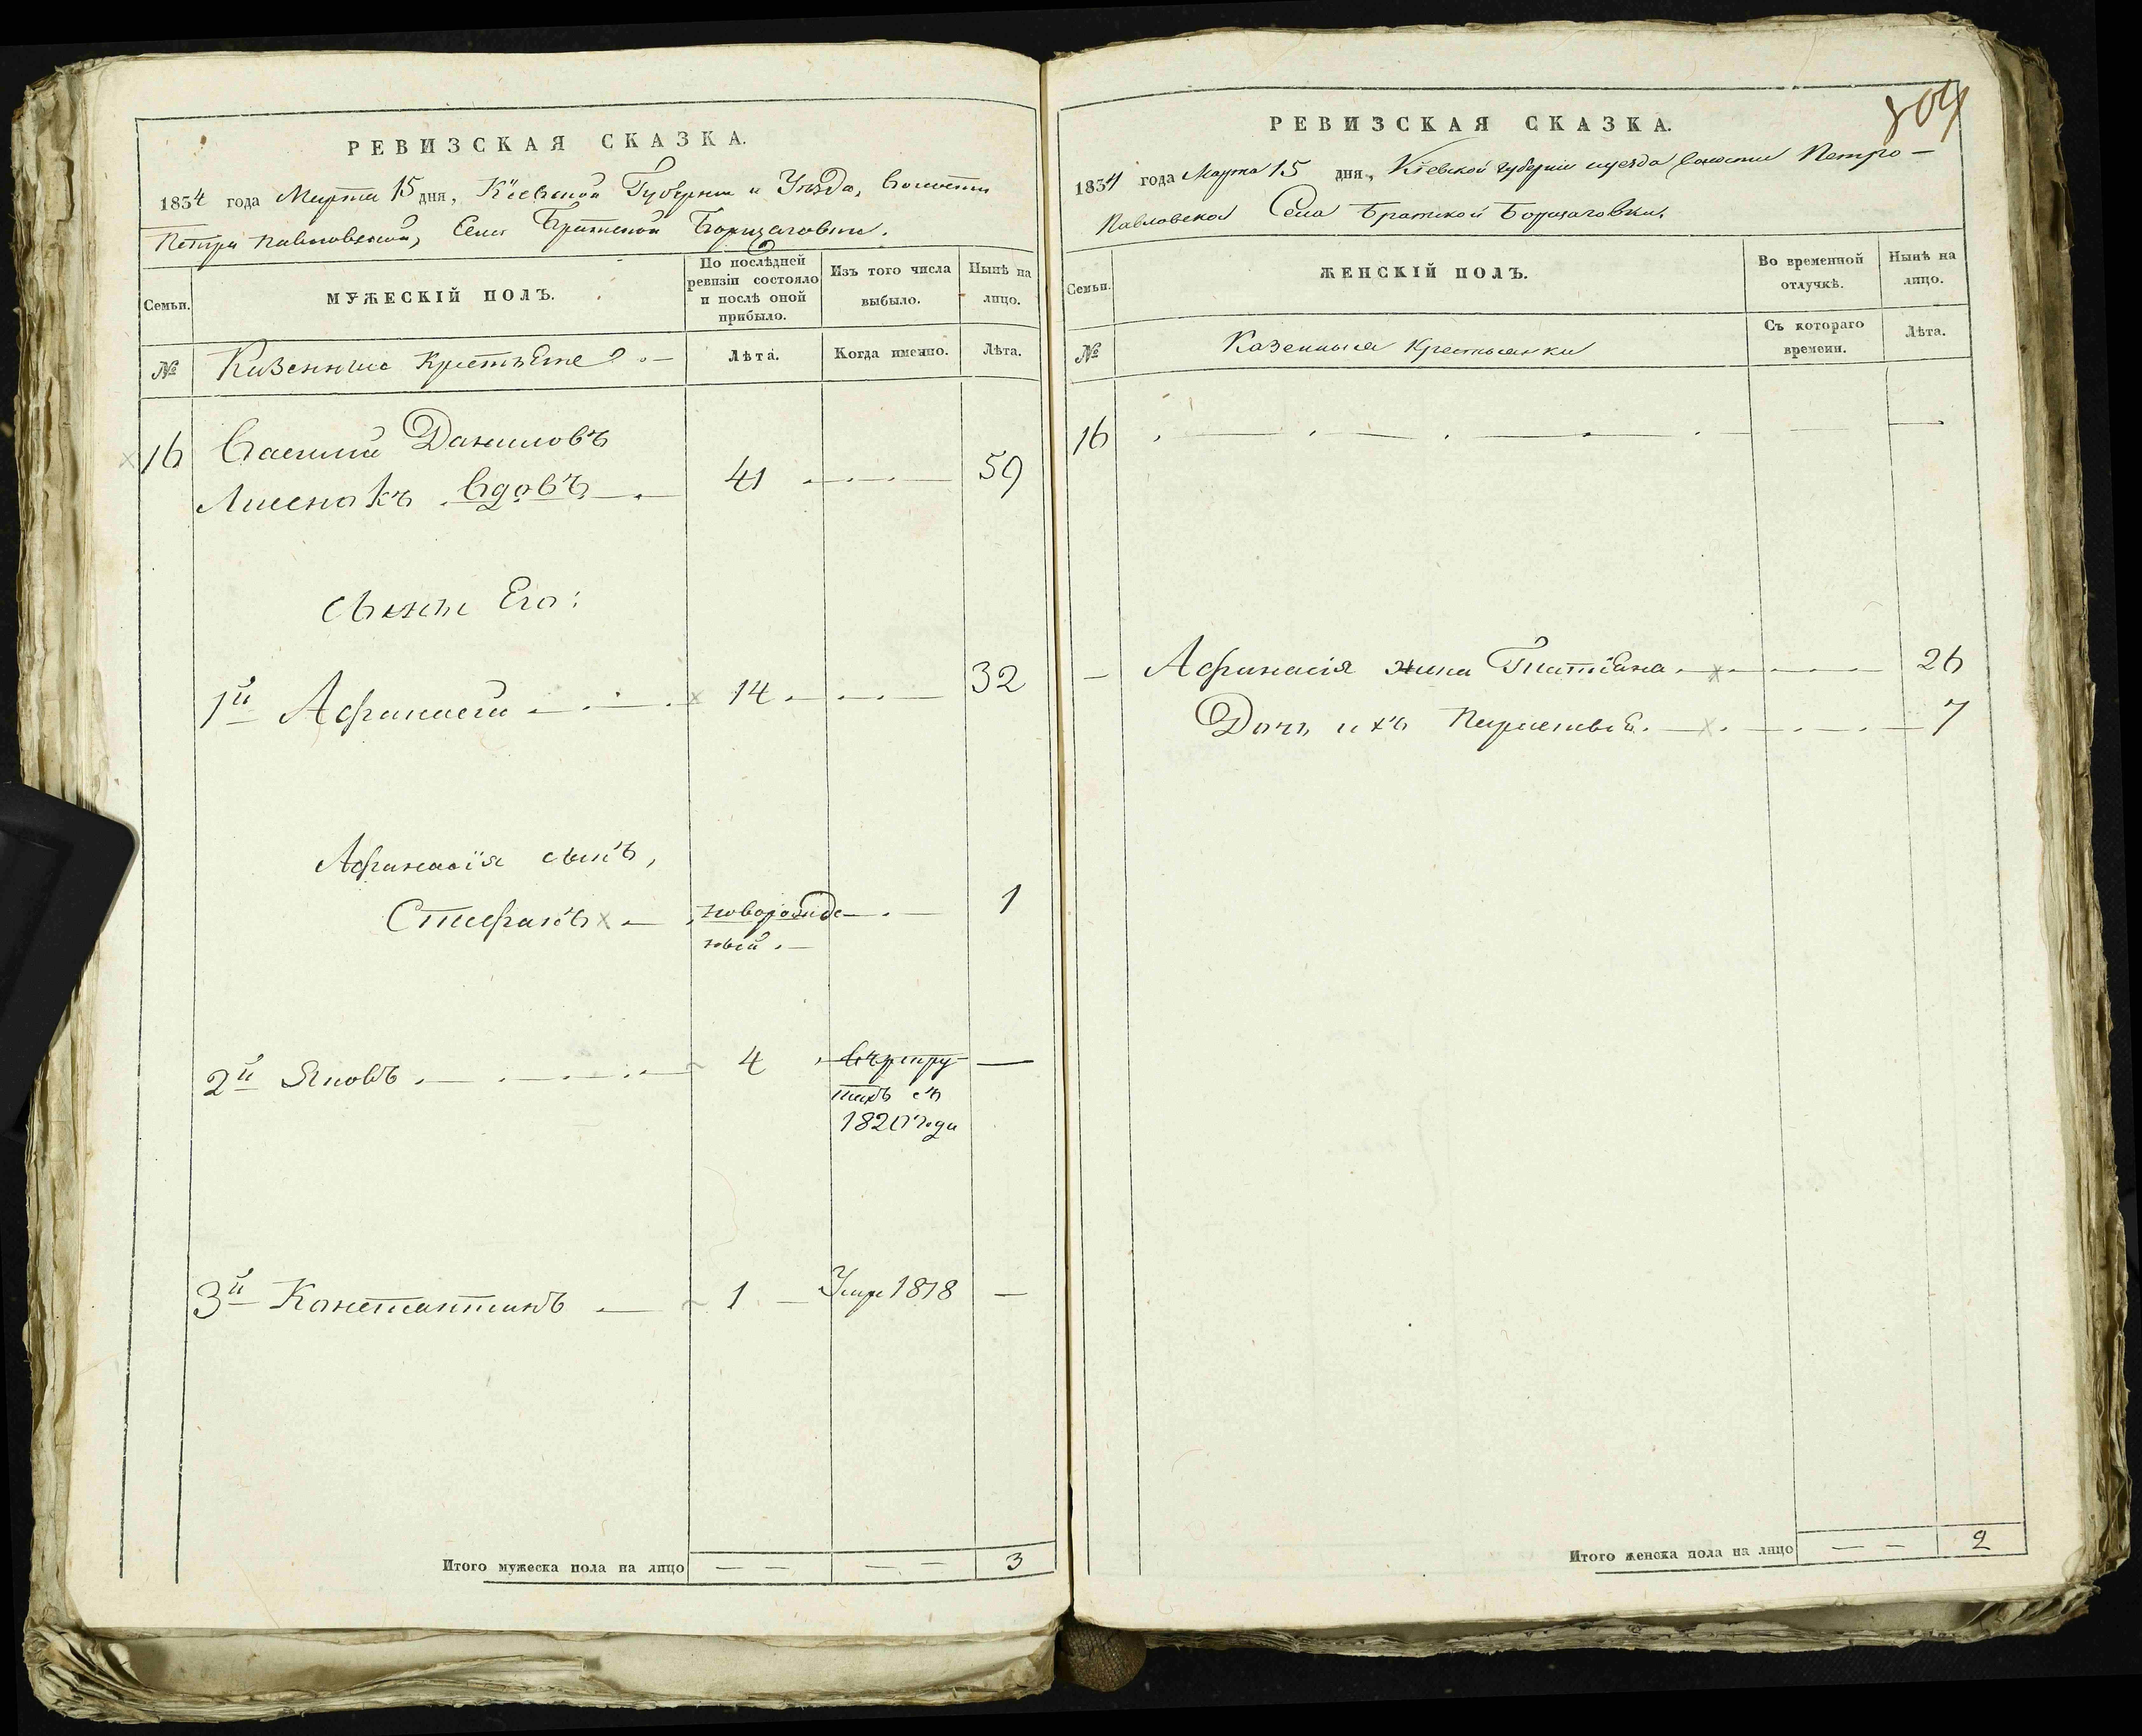 РЕВИЗСКАЯ СКАЗКА.
1834 года Марта 15 дня, Кіевской Губерніи и Уезда, Волости
Петропавловской, Села Братской Борщаговки.
Семьи.
МУЖЕСКІЙ ПОЛЪ.
По послѣдней
ревизіи состояло
и послѣ оной
прибыло.
Изъ того числа
выбыло.
Нынѣ на
лицо.
№
Казенные Крестьяне
Лѣта.
Когда именно.
Лѣта.
16 Василій Даниловъ
Вдовъ 41 59
сыны Его:
1й Афанасій 14 32
Афанасія сынъ,
Стефанъ новорожде 1
ный
2й Яковъ 4 въ рекру
тахъ съ
года
3й Константинъ 1 Умре 1818
Итого мужеска пола на лицо 3
804
РЕВИЗСКАЯ СКАЗКА.
1834 года Марта 15 дня, Кіевской губерніи иуезда волости Петро-
Павловской Села Братской Борщаговки.
Семьи.
ЖЕНСКІЙ ПОЛЪ.
Во временной
отлучкѣ.
Нынѣ на
лицо.
№
Казенныя Крестьянки
Съ котораго
времени.
Лѣта.
16
Афанасія жена Татіана 26
Дочь ихъ 7
Итого женска пола на лицо 2